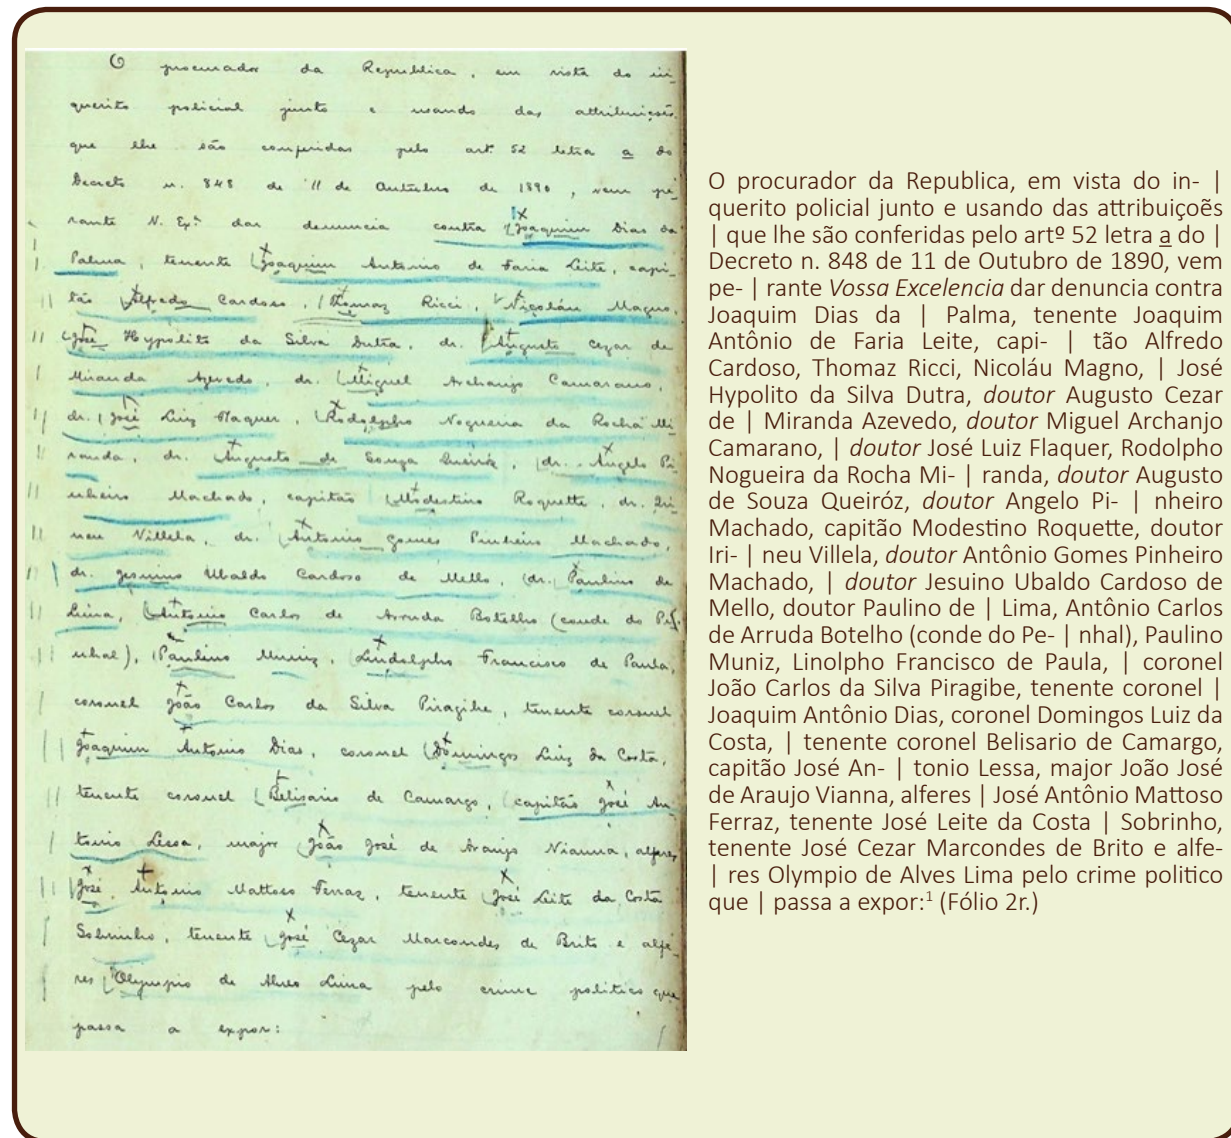 O procurador da Republica, em vista do in-
querito policial junto e usando das attribuições
que lhe são conferidas pelo artº 52 letra a do
Decreto n. 848 de 11 de Outubro de 1890, vem pe-
rante V. Exª dar denuncia contra Joaquim Dias da
Palma, tenente Joaquim Antonio de Faria Leite, capi-
tão Alfredo Cardoso, Thomaz Ricci, Nicoláu Magno,
José Hypolito da Silva Dutra, dr. Augusto Cezar de
Miranda Azevedo, dr. Miguel Archanjo Camarano,
dr. José Luiz Flaquer, Rodolpho Nogueira da Rocha Mi-
randa, dr. Augusto de Souza Queiróz, dr. Angelo Pi-
nheiro Machado, capitão Modestino Roquette, dr. Iri-
neu Villela, dr. Antonio Gomes Pinheiro Machado,
dr. Jesuino Ubaldo Cardoso de Mello, dr. Paulino de
Lima, Antonio Carlos de Arruda Botelho (conde do Pi-
nhal), Paulino Muniz, Lindolpho Francisco de Paula,
coronel João Carlos da Silva Piragibe, tenente coronel
Joaquim Antonio Dias, coronel Domingos Luiz da Costa,
tenente coronel Belisario de Camargo, capitão José An-
tonio Lessa, major João José de Araujo Vianna, alferes
José Antonio Mattoso Ferraz, tenente José Leite da Costa
Sobrinho, tenente José Cezar Marcondes de Brito e alfe-
res Olympio de Alves Lima pelo crime politico que
passa a expor:
O procurador da Republica, em vista do in- |
querito policial junto e usando das attribuiçoẽs
| que lhe são conferidas pelo artº 52 letra a do |
Decreto n. 848 de 11 de Outubro de 1890, vem
pe- | rante Vossa Excelencia dar denuncia contra
Joaquim Dias da | Palma, tenente Joaquim
Antônio de Faria Leite, capi- | tão Alfredo
Cardoso, Thomaz Ricci, Nicoláu Magno, | José
Hypolito da Silva Dutra, doutor Augusto Cezar
de | Miranda Azevedo, doutor Miguel Archanjo
Camarano, | doutor José Luiz Flaquer, Rodolpho
Nogueira da Rocha Mi- | randa, doutor Augusto
de Souza Queiróz, doutor Angelo Pi- | nheiro
Machado, capitão Modestino Roquette, doutor
Iri- | neu Villela, doutor Antônio Gomes Pinheiro
Machado, | doutor Jesuino Ubaldo Cardoso de
Mello, doutor Paulino de | Lima, Antônio Carlos
de Arruda Botelho (conde do Pe- | nhal), Paulino
Muniz, Linolpho Francisco de Paula, | coronel
João Carlos da Silva Piragibe, tenente coronel |
Joaquim Antônio Dias, coronel Domingos Luiz da
Costa, | tenente coronel Belisario de Camargo,
capitão José An- | tonio Lessa, major João José
de Araujo Vianna, alferes | José Antônio Mattoso
Ferraz, tenente José Leite da Costa | Sobrinho,
tenente José Cezar Marcondes de Brito e alfe-
| res Olympio de Alves Lima pelo crime politico
que | passa a expor:¹ (Fólio 2r.)